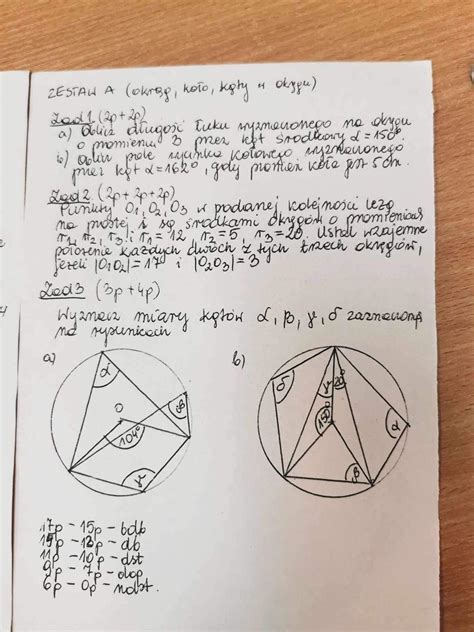 ZESTAW A (okrąg, koło, kąty w okręgu)
Zad 1. (2p + 2p)
a) Oblicz długość łuku wyznaczonego na okręgu
o promieniu 3 przez kąt środkowy α = 150°.
b) Oblicz pole wycinka kołowego wyznaczonego
przez kąt α = 162°, gdy promień koła jest 5 cm.
Zad 2. (2p + 2p + 2p)
Punkty O1, O2, O3 w podanej kolejności leżą
na prostej i są środkami okręgów o promieniach
r1, r2, r3 i r1 = 12, r2 = 5, r3 = 20. Ustal wzajemne
położenie każdych dwóch z tych trzech okręgów,
jeżeli |O1O2| = 17 i |O2O3| = 3
Zad 3 (3p + 4p)
Wyznacz miary kątów α, β, γ, δ zaznaczone
na rysunkach
a) b)
α O 104° β γ
δ γ 20° 150° α β
17p - 15p - bdb
13p - db
11p - 10p - dst
9p - 7p - dop
6p - 0p - ndst.